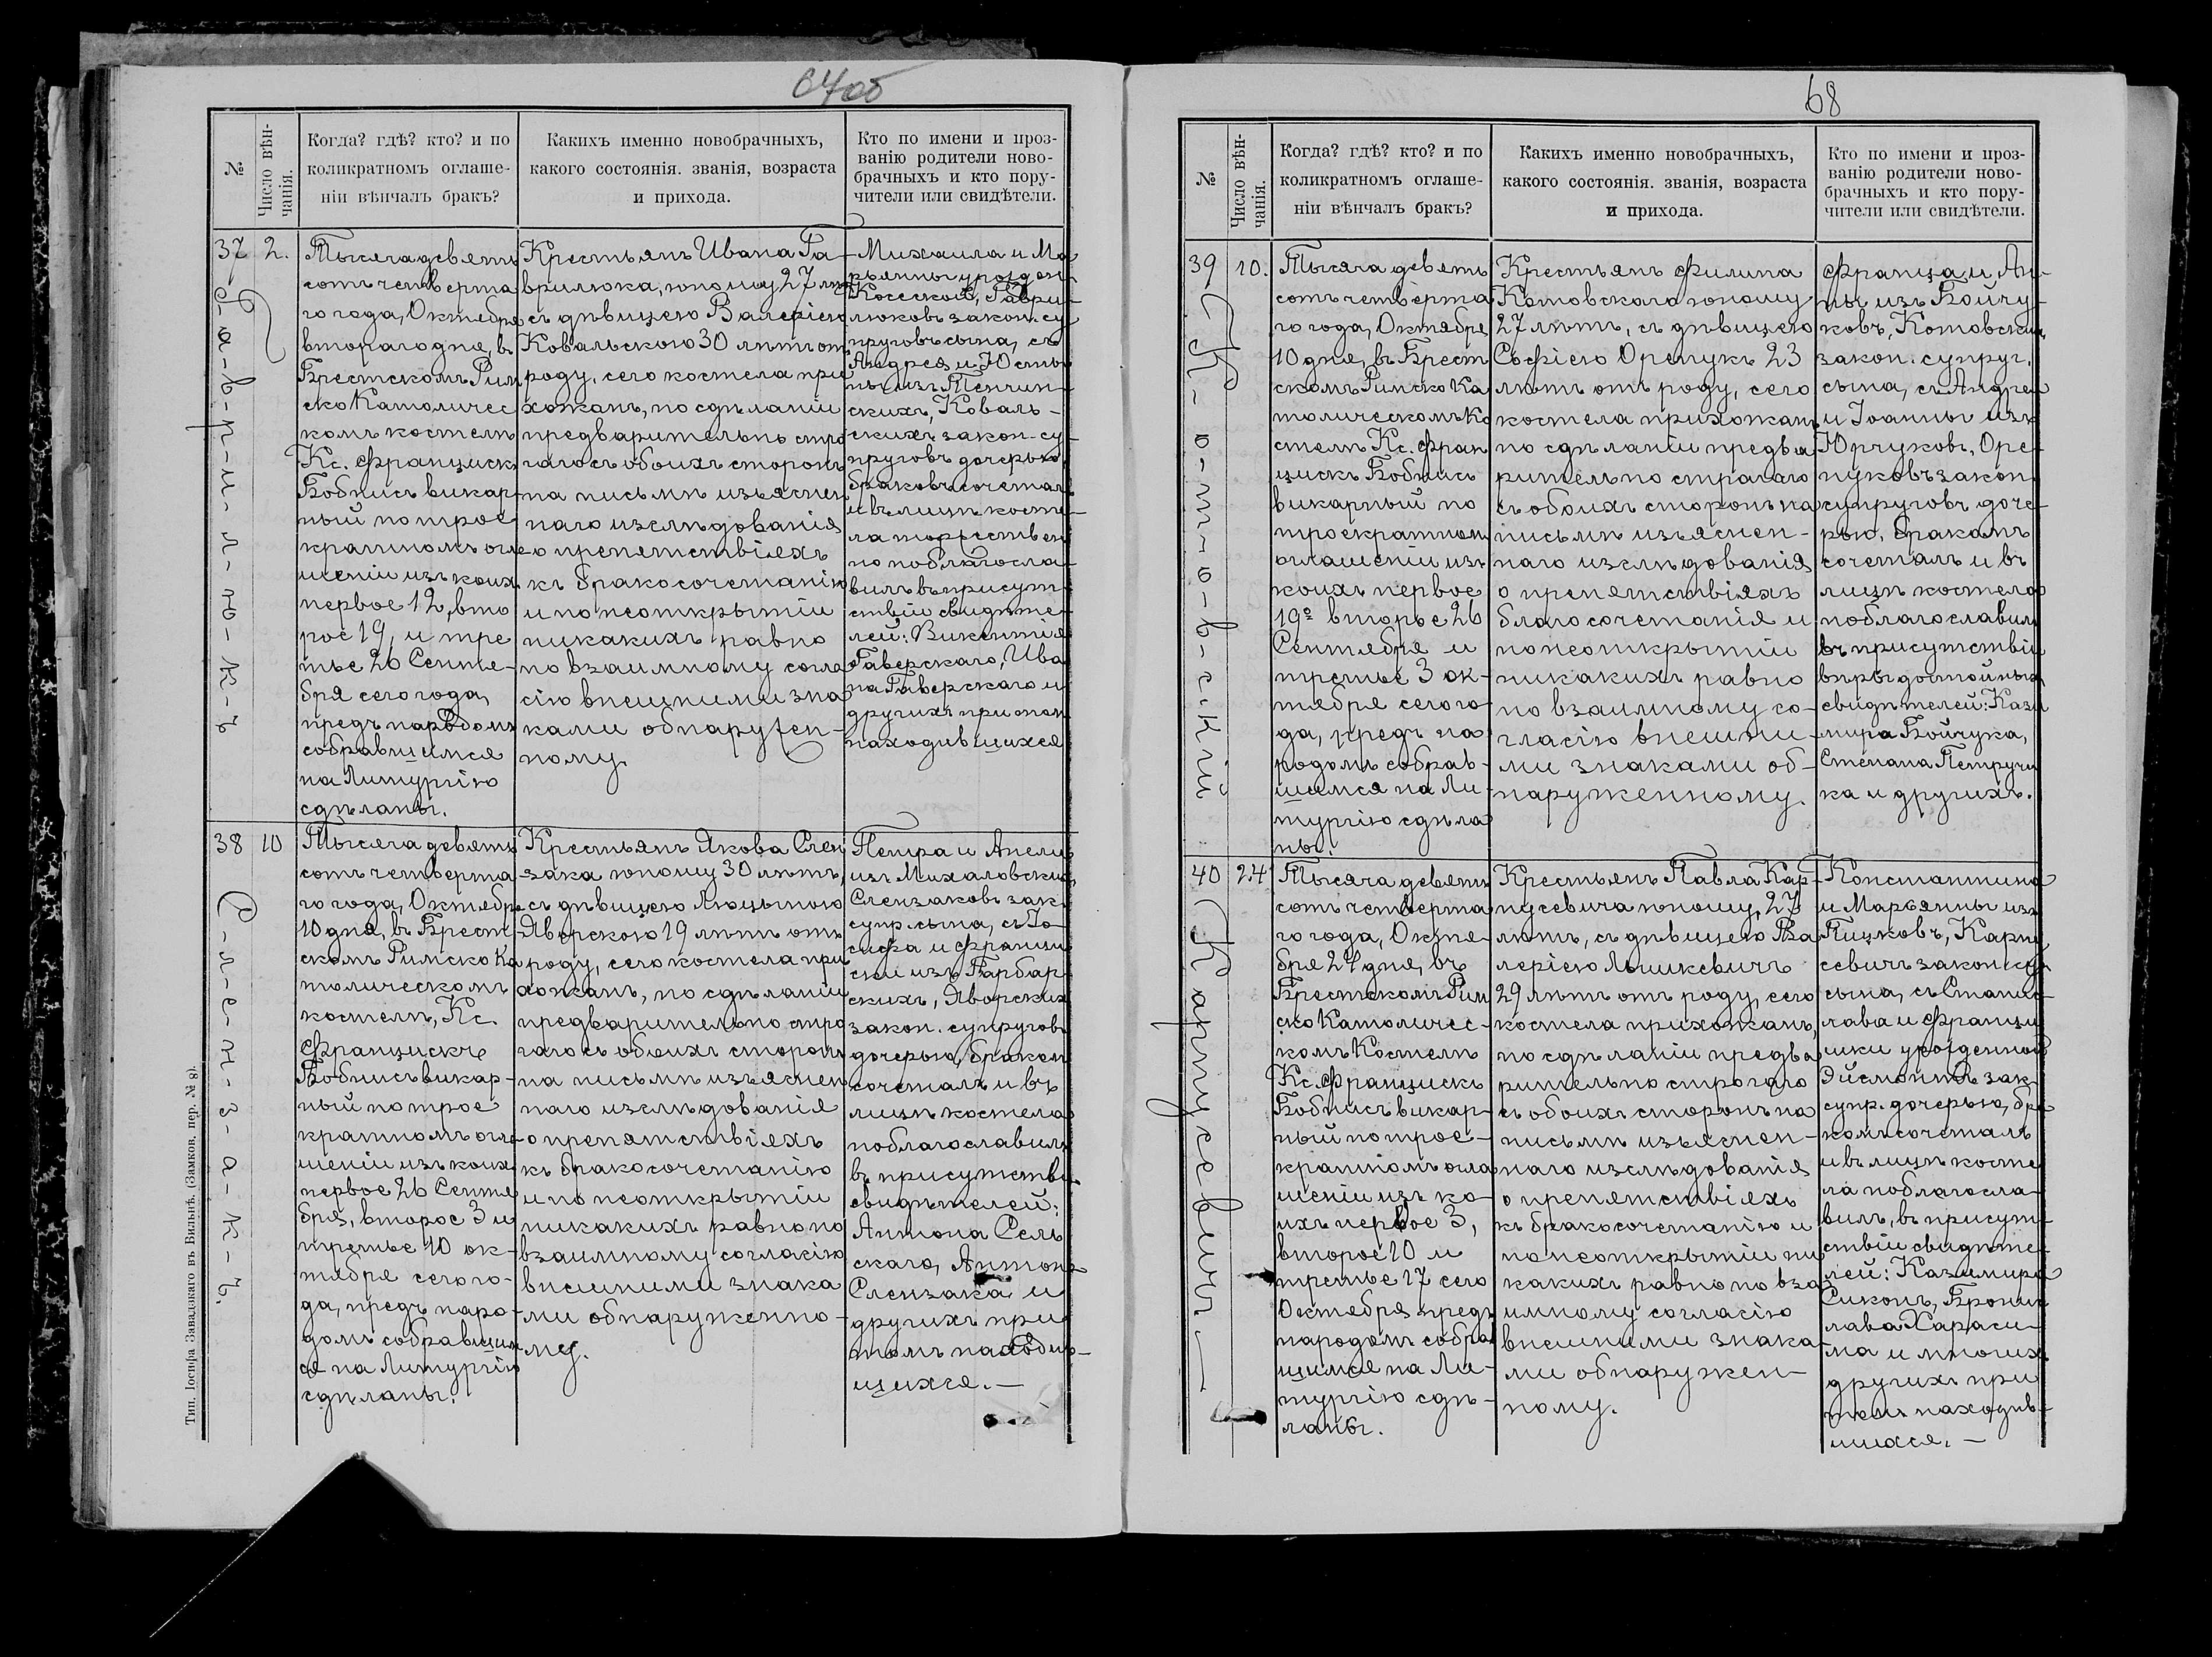 67об
№
Число вѣн-
чанія.
Когда? гдѣ? кто? и по
коликратномъ оглаше-
ніи вѣнчалъ бракъ?
Какихъ именно новобрачныхъ,
какого состоянія. званія, возраста
и прихода.
Кто по имени и проз-
ванію родители ново-
брачныхъ и кто пору-
чители или свидѣтели.
37
Г-а-в-р-и-л-ю-к-ъ
2.
Тысяча девять
сотъ четверта
го года, Октября
втораго дня, въ
Брестскомъ Рим
ско Католичес
комъ костелѣ
Кс. Францискъ
Бобнисъ викар-
ный по трое
кратномъ огла
шеніи изъ коихъ
первое 12, вто
рое 19, и тре
тье 26 Сентя-
бря сего года,
предъ народомъ
собравшимся
на Литургію
сдѣланы.
Крестьянъ Ивана Га-
врилюка, юношу 27 лѣтъ
съ дѣвицею Валеріею
Ковальскою 30 лѣтъ отъ
роду, сего костела при
хожанъ, по сдѣланіи
предварительно стро
гаго съ обоихъ сторонъ
на письмѣ изъяснен
наго изслѣдованія
о препятствіяхъ
къ бракосочетанію
и по неоткрытіи
никакихъ равно
по взаимному согла
сію внешними зна
ками обнаружен-
ному.
Михаила и Ма
рьянны урожден
Коссковъ, Гаври-
люковъ закон. су
пруговъ сына, съ
Андрея и Юсты
ны изъ Тенчин-
скихъ, Коваль-
скихъ закон. су-
пруговъ дочерью,
бракомъ сочеталъ
и въ лицѣ косте-
ла торжествен
но поблагосла-
вилъ въ присут-
ствіи свидѣте-
лей: Викентія
Гаверскаго, Ива
на Гаверскаго и
другихъ при томъ
находившихся
38
С-л-е-н-з-а-к-ъ.
10
Тысяча девять
сотъ четверта
го года, Октября
10 дня, въ Брест-
скомъ Римско Ка
толическомъ
костелѣ, Кс.
Францискъ
Бобнисъ викар-
ный по трое
кратномъ огла-
шеніи изъ коихъ
первое 26 Сентя
бря, второе 3 и
третье 10 ок-
тября сего го-
да, предъ наро-
домъ собравшим
ся на Литургію
сдѣланы.
Крестьянъ Якова Слен
зака юношу 30 лѣтъ,
съ дѣвицею Люцыною
Яворскою 19 лѣтъ отъ
роду, сего костела при
хожанъ, по сдѣланіи
предварительно стро
гаго съ обоихъ сторонъ
на письмѣ изъяснен
наго изслѣдованія
о препятствіяхъ
къ бракосочетанію
и по неоткрытіи
никакихъ равно по
взаимному согласію
внешними знака
ми обнаруженно-
му.
Петра и Анели
изъ Михаловскихъ,
Слензаковъ зак.
супр. сына, съ Іо-
сифа и Францы
ски изъ Барбар-
скихъ, Яворскихъ
закон. супруговъ
дочерью, бракомъ
сочеталъ и въ
лицѣ костела
поблагославилъ
въ присутствіи
свидѣтелей:
Антона Сель
скаго, Антона
Слензака и
другихъ при
томъ находив-
шихся.—
Тип. Іосифа Завадзкаго въ Вильнѣ. (Замков. пер. № 8).
68
№
Число вѣн-
чанія.
Когда? гдѣ? кто? и по
коликратномъ оглаше-
ніи вѣнчалъ бракъ?
Какихъ именно новобрачныхъ,
какого состоянія. званія, возраста
и прихода.
Кто по имени и проз-
ванію родители ново-
брачныхъ и кто пору-
чители или свидѣтели.
39
К-о-т-о-в-с-кій
10.
Тысяча девять
сотъ четверта
го года, Октября
10 дня, въ Брест
скомъ Римско Ка
толическомъ Ко
стелѣ Кс. Фран
цискъ Бобнисъ
викарный по
троекратномъ
оглашеніи изъ
коихъ первое
19е второе 26
Сентября и
третье 3 ок-
тября сего го-
да, предъ на
родомъ собрав-
шимся на Ли-
тургію сдѣла
ны.
Крестьянъ Филипа
Котовскаго юношу
27 лѣтъ, съ дѣвицею
Софіею Орепукъ 23
лѣтъ отъ роду, сего
костела прихожанъ
по сдѣланіи предва
рительно строгаго
съ обоихъ сторонъ на
письмѣ изъяснен-
наго изслѣдованія
о препятствіяхъ
благосочетанія и
по неоткрытіи
никакихъ равно
по взаимному со-
гласію внешни
ми знаками об-
наруженному.
Франца и Ан-
ны изъ Бойчу-
ковъ, Котовскихъ
закон. супруг.
сына, съ Андрея
и Іоанны изъ
Юрчуковъ, Оре-
пуковъ закон.
супруговъ доче-
рью, бракомъ
сочеталъ и въ
лицѣ костела
поблагославилъ
въ присутствіи
вѣры достойныхъ
свидѣтелей: Кази
мира Бойчука,
Степана Петручи
ка и другихъ.
40
Карпусевичъ—
24
Тысяча девять
сотъ четверта
го года, Октя-
бря 24 дня, въ
Брестскомъ Рим
ско Католичес-
комъ Костелѣ
Кс. Францискъ
Бобнисъ викар-
ный по трое-
кратномъ огла
шеніи изъ ко-
ихъ первое 3,
второе 10 и
третье 17 сего
Октября предъ
народомъ собра
шимся на Ли-
тургію сдѣ-
ланы.
Крестьянъ Павла Кар-
пусевича юношу, 27
лѣтъ, съ дѣвицею Ва
леріею Лышкевичъ
29 лѣтъ отъ роду, сего
костела прихожанъ,
по сдѣланіи предва
рительно строгаго
съ обоихъ сторонъ на
письмѣ изъяснен-
наго изслѣдованія
о препятствіяхъ
къ бракосочетанію и
по неоткрытіи ни
какихъ равно по вза
имному согласію
внешними знака-
ми обнаружен-
ному.
Константина
и Марьянны изъ
Пицковъ, Карпу
севичъ закон. су
сына, съ Станис-
лава и Францы
шки урожденной
Эйсмонтъ зак.
супр. дочерью, бра
комъ сочеталъ
и въ лицѣ косте
ла поблагосла-
вилъ, въ присут-
ствіи свидѣте-
лей: Казимира
Сикоръ, Бронис
лава Хараси-
ма и многихъ
другихъ при
томъ находив-
шихся.—